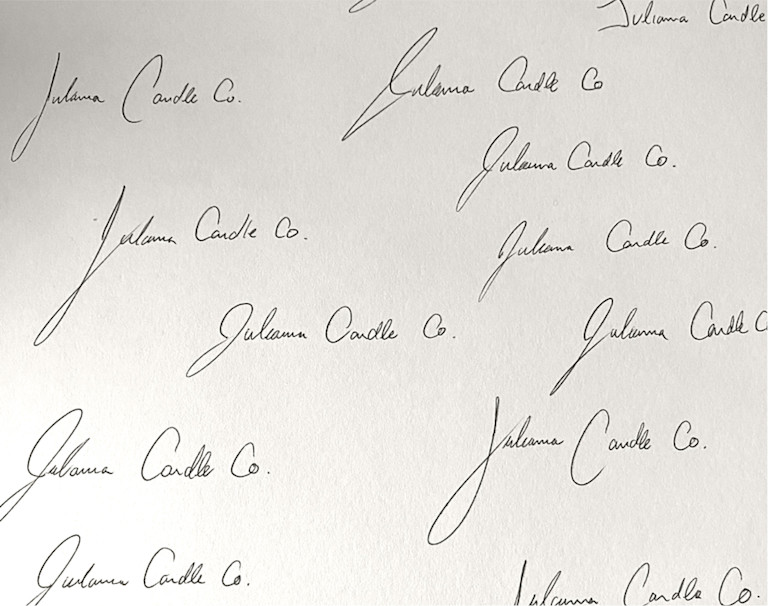 Juliana Candle
Juliana Candle Co.
Juliana Candle Co
Juliana Candle Co.
Juliana Candle Co.
Juliana Candle Co.
Juliana Candle Co.
Juliana Candle C
Juliana Candle Co.
Juliana Candle Co.
Juliana Candle Co.
Juliana Candle Co.